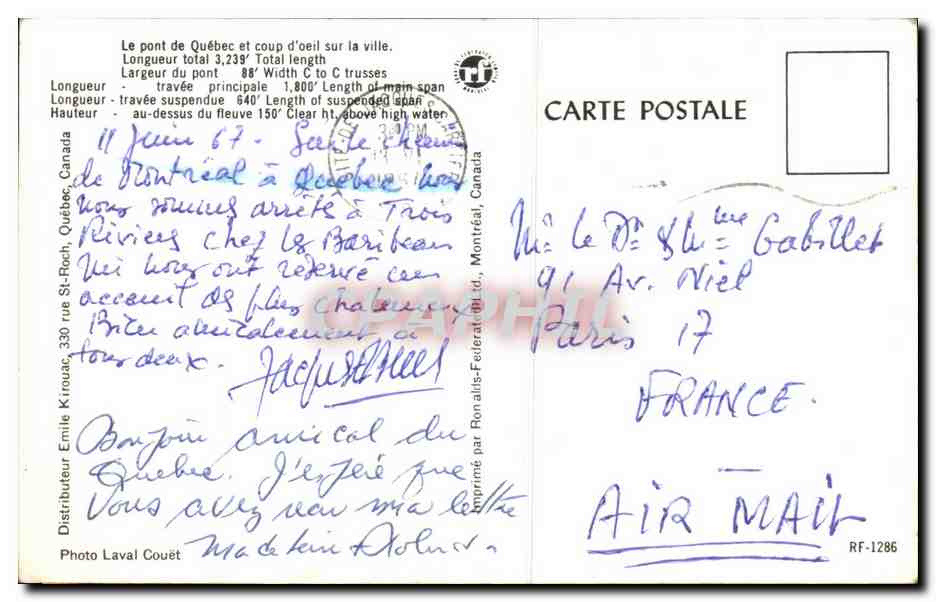 Le pont de Québec et coup d'oeil sur la ville.
Longueur total 3,239' Total length
Largeur du pont 88' Width C to C trusses
Longueur - travée principale 1,800' Length of main span
Longueur - travée suspendue 640' Length of suspended span
Hauteur - au-dessus du fleuve 150' Clear ht. above high water
rf
CARTE POSTALE
11 Juin 67 - Sur le chemin
de Montréal à Québec nous
nous sommes arrêtés à Trois
Rivieres chez les Baribeau
qui nous ont réservé un
accueil des plus chaleureux
Bien amicalement à
tous deux.
Jacques
Bonjour amical du
Quebec. J'espère que
vous avez reçu ma lettre
Madeleine
Mr le Dr & Mme Gabillet
91 Av. Niel
Paris 17
FRANCE.
AIR MAIL
Distributeur Emile Kirouac, 330 rue St-Roch, Québec, Canada
Imprimé par Ronalds-Federated Ltd., Montréal, Canada
Photo Laval Couët
RF-1286
CPAPHIL